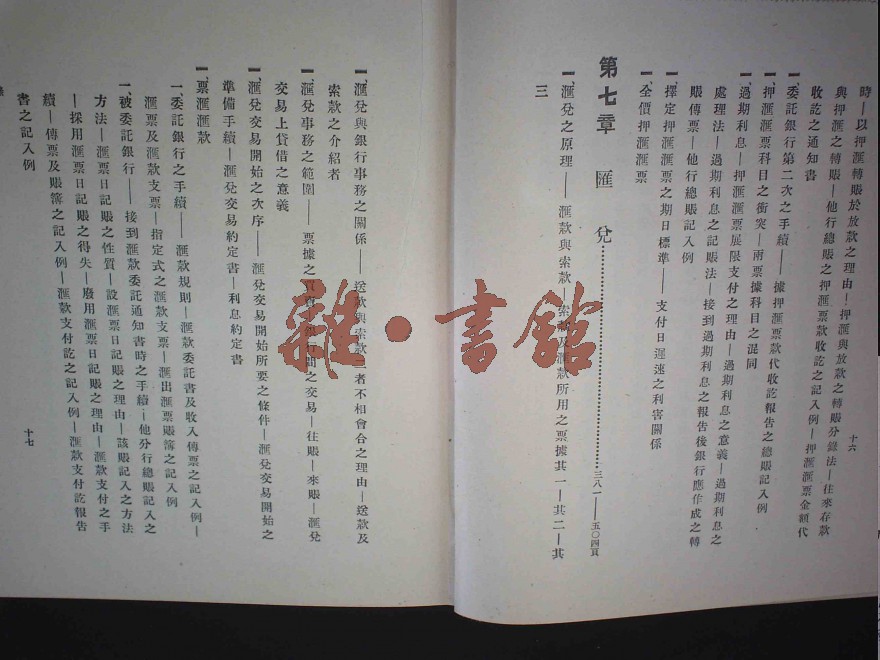 時—以押滙轉賬於放款之理由—押滙與放款之轉賬分錄法—往來存款
與押滙之轉賬—他行總賬之押滙票款收訖之記入例—押滙滙票金額代
收訖之通知書
一、委託銀行第二次之手續——據押滙票款代收訖報告之總賬記入例
一、押滙票科目之衝突—兩票據科目之混同
一、過期利息—押滙滙票展限支付之理由—過期利息之意義—過期利息之
處理法—過期利息之記賬法—接到過期利息之報告後銀行應作成之轉
賬傳票—他行總賬記入例
一、擇定押滙滙票之期日標準——支付日遲速之利害關係
一、全價押滙滙票
第七章 匯兌……三八一——五〇四頁
一、滙兌之原理——滙款與索款—索款及滙款所用之票據其一—其二—其
三
十六
一、滙兌與銀行事務之關係—送款與索款二者不相會合之理由—送款及
索款之介紹者
一、滙兌事務之範圍——票據之買賣—銀行間之交易—往賬—來賬—滙兌
交易上貸借之意義
一、滙兌交易開始之次序——滙兌交易開始所要之條件—滙兌交易開始之
準備手續—滙兌交易約定書—利息約定書
一、票滙滙款
一、委託銀行之手續——滙款規則—滙款委託書及收入傳票之記入例—
滙票及滙款支票—指定式之滙款支票—滙出滙票賬簿之記入例
一、被委託銀行——接到滙款委託通知書時之手續—他分行總賬記入之
方法—滙票日記賬之性質—設滙票日記賬之理由—該賬記入之方法
—採用滙票日記賬之得失—廢用滙票日記賬之理由—滙款支付之手
續—傳票及賬簿之記入例—滙款支付訖之記入例—滙款支付訖報告
書之記入例
十七
雜·書館